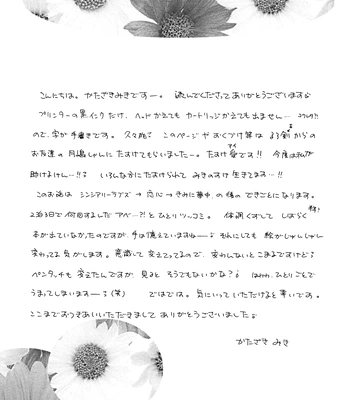 こんにちは。かたざきみきですー。読んでくださってありがとうございます♪
プリンターの黒インクだけ、ヘッドかえても カートリッジかえても出ません…
ので、字が手書きです。久々だ〜 このページ や おくづけ等は ある からの
お友達の月島しゃんに たすけてもらいましたー。たすけ愛です!! 今度は私が
助けまけん…!! いろんな方にたすけられて みきのすけ 生きてます…!!
このお話は シンシアリーラブズ → 恋心 → きみに夢中 の 後の できごとになります。
2泊3日で 何回するんだ アヘ…?! と ひとりツッコミ。 体調くずして しばらく
本が出ていなかったのですが、手は憶えていますねー それにしても 絵がじゃんじゃん
変わってる気がします。意識して変えてってるので、変わんないと こまるですけど
ペンタッチも 変えたんですが、見ると そうでもないかな? ひとりごとで
うまってしまいますー (笑) ではでは。気にいって いただけると 幸いです。
ここまでおつきあいいただきまして ありがとうございました。
かたざき みき